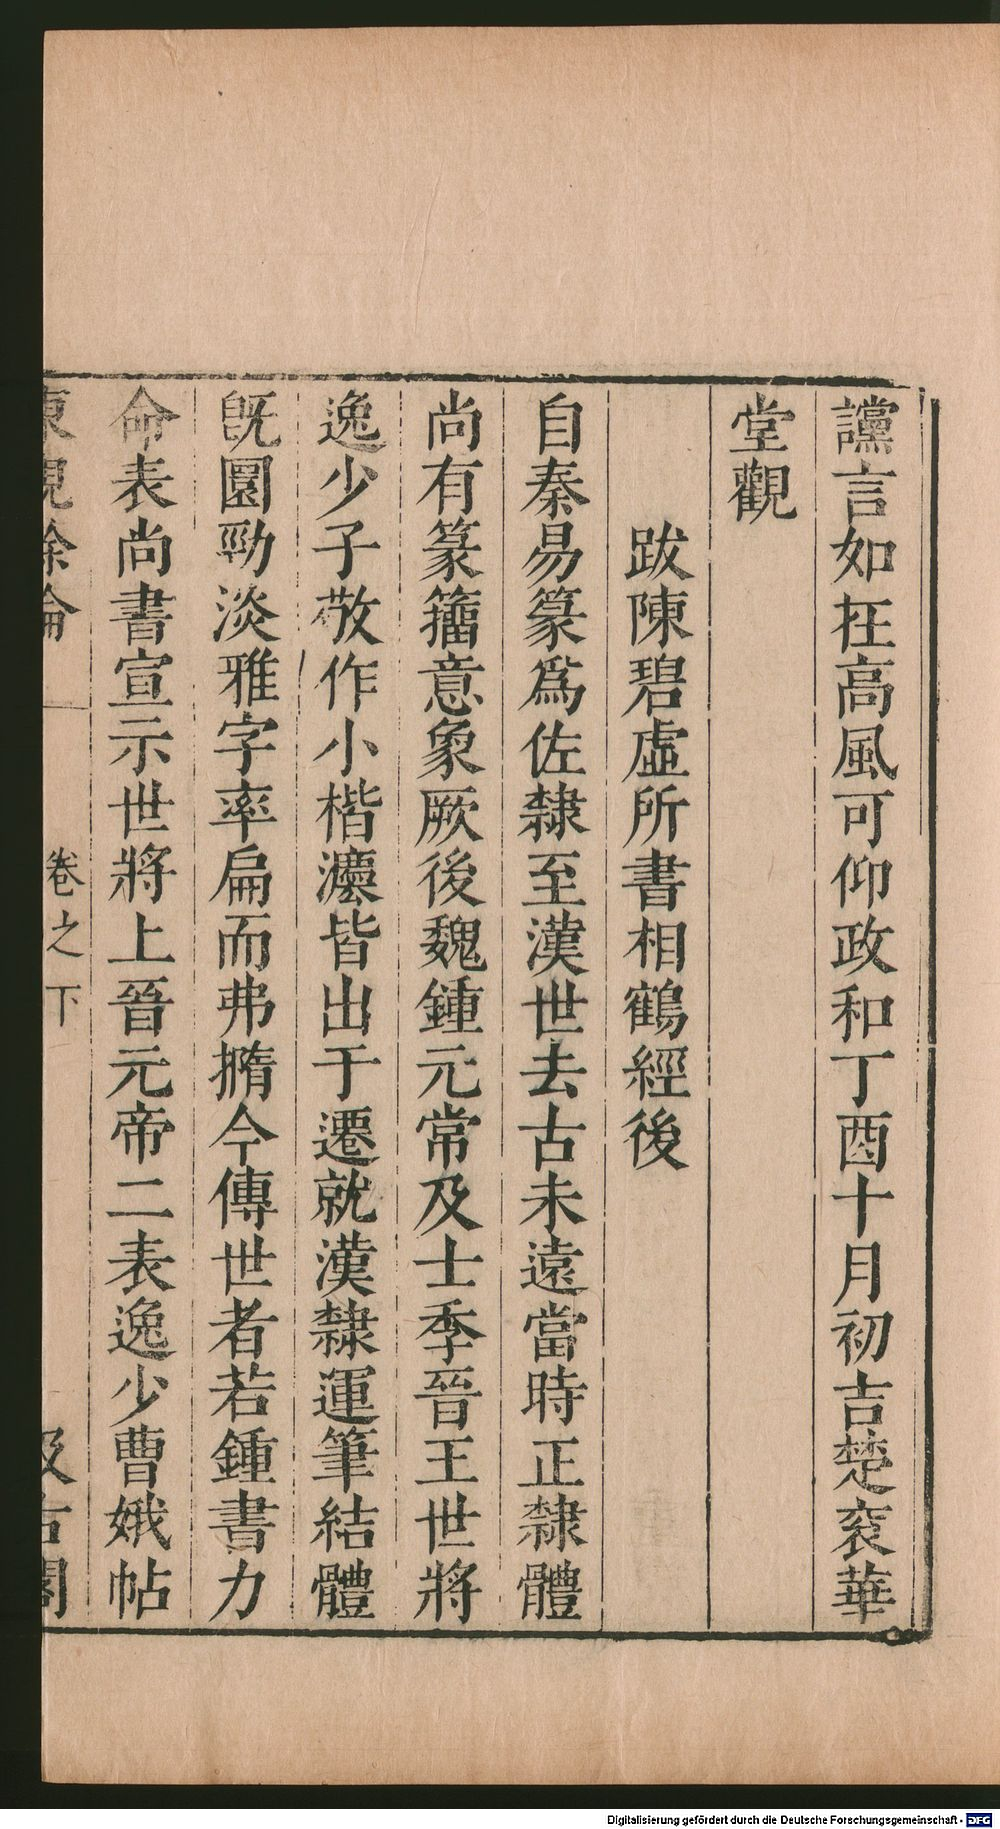 讜言如在高風可仰政和丁酉十月初吉楚袞華
堂觀
跋陳碧虛所書相鶴經後
自秦易篆爲佐隸至漢世去古未遠當時正隸體
尚有篆籀意象厥後魏鍾元常及士季晉王世將
逸少子敬作小楷灋皆出于遷就漢隸運筆結體
旣圜勁淡雅字率扁而弗橢今傳世者若鍾書力
命表尚書宣示世將上晉元帝二表逸少曹娥帖
東觀餘論 卷之下 汲古閣
Digitalisierung gefördert durch die Deutsche Forschungsgemeinschaft - DFG